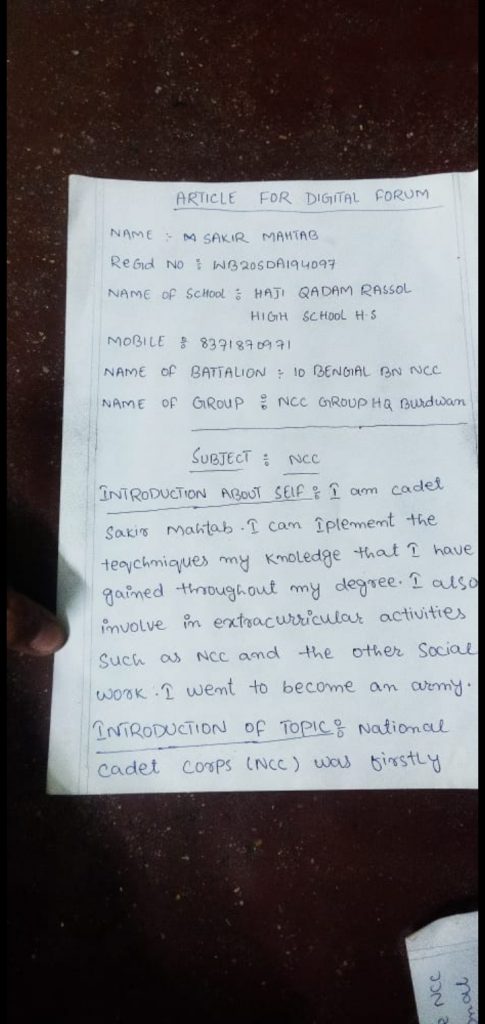 ARTICLE FOR DIGITAL FORUM
NAME :- M SAKIR MAHTAB
ReGd NO : WB20SDA194097
NAME OF SCHOOL : HAJI QADAM RASSOL
HIGH SCHOOL H.S
MOBILE : 8371870971
NAME OF BATTALION :- 10 BENGIAL BN NCC
NAME OF GROUP : NCC GROUP HQ Burdwan
SUBJECT : NCC
INTRODUCTION ABOUT SELF : I am cadet
Sakir Mahtab . I can Iplement the
teqchniques my Knoledge that I have
gained throughout my degree. I also
involve in extracurricular activities
Such as NCC and the other Social
work . I went to become an army.
INTRODUCTION OF TOPIC : National
Cadet Corps (NCC) was firstly
NCC